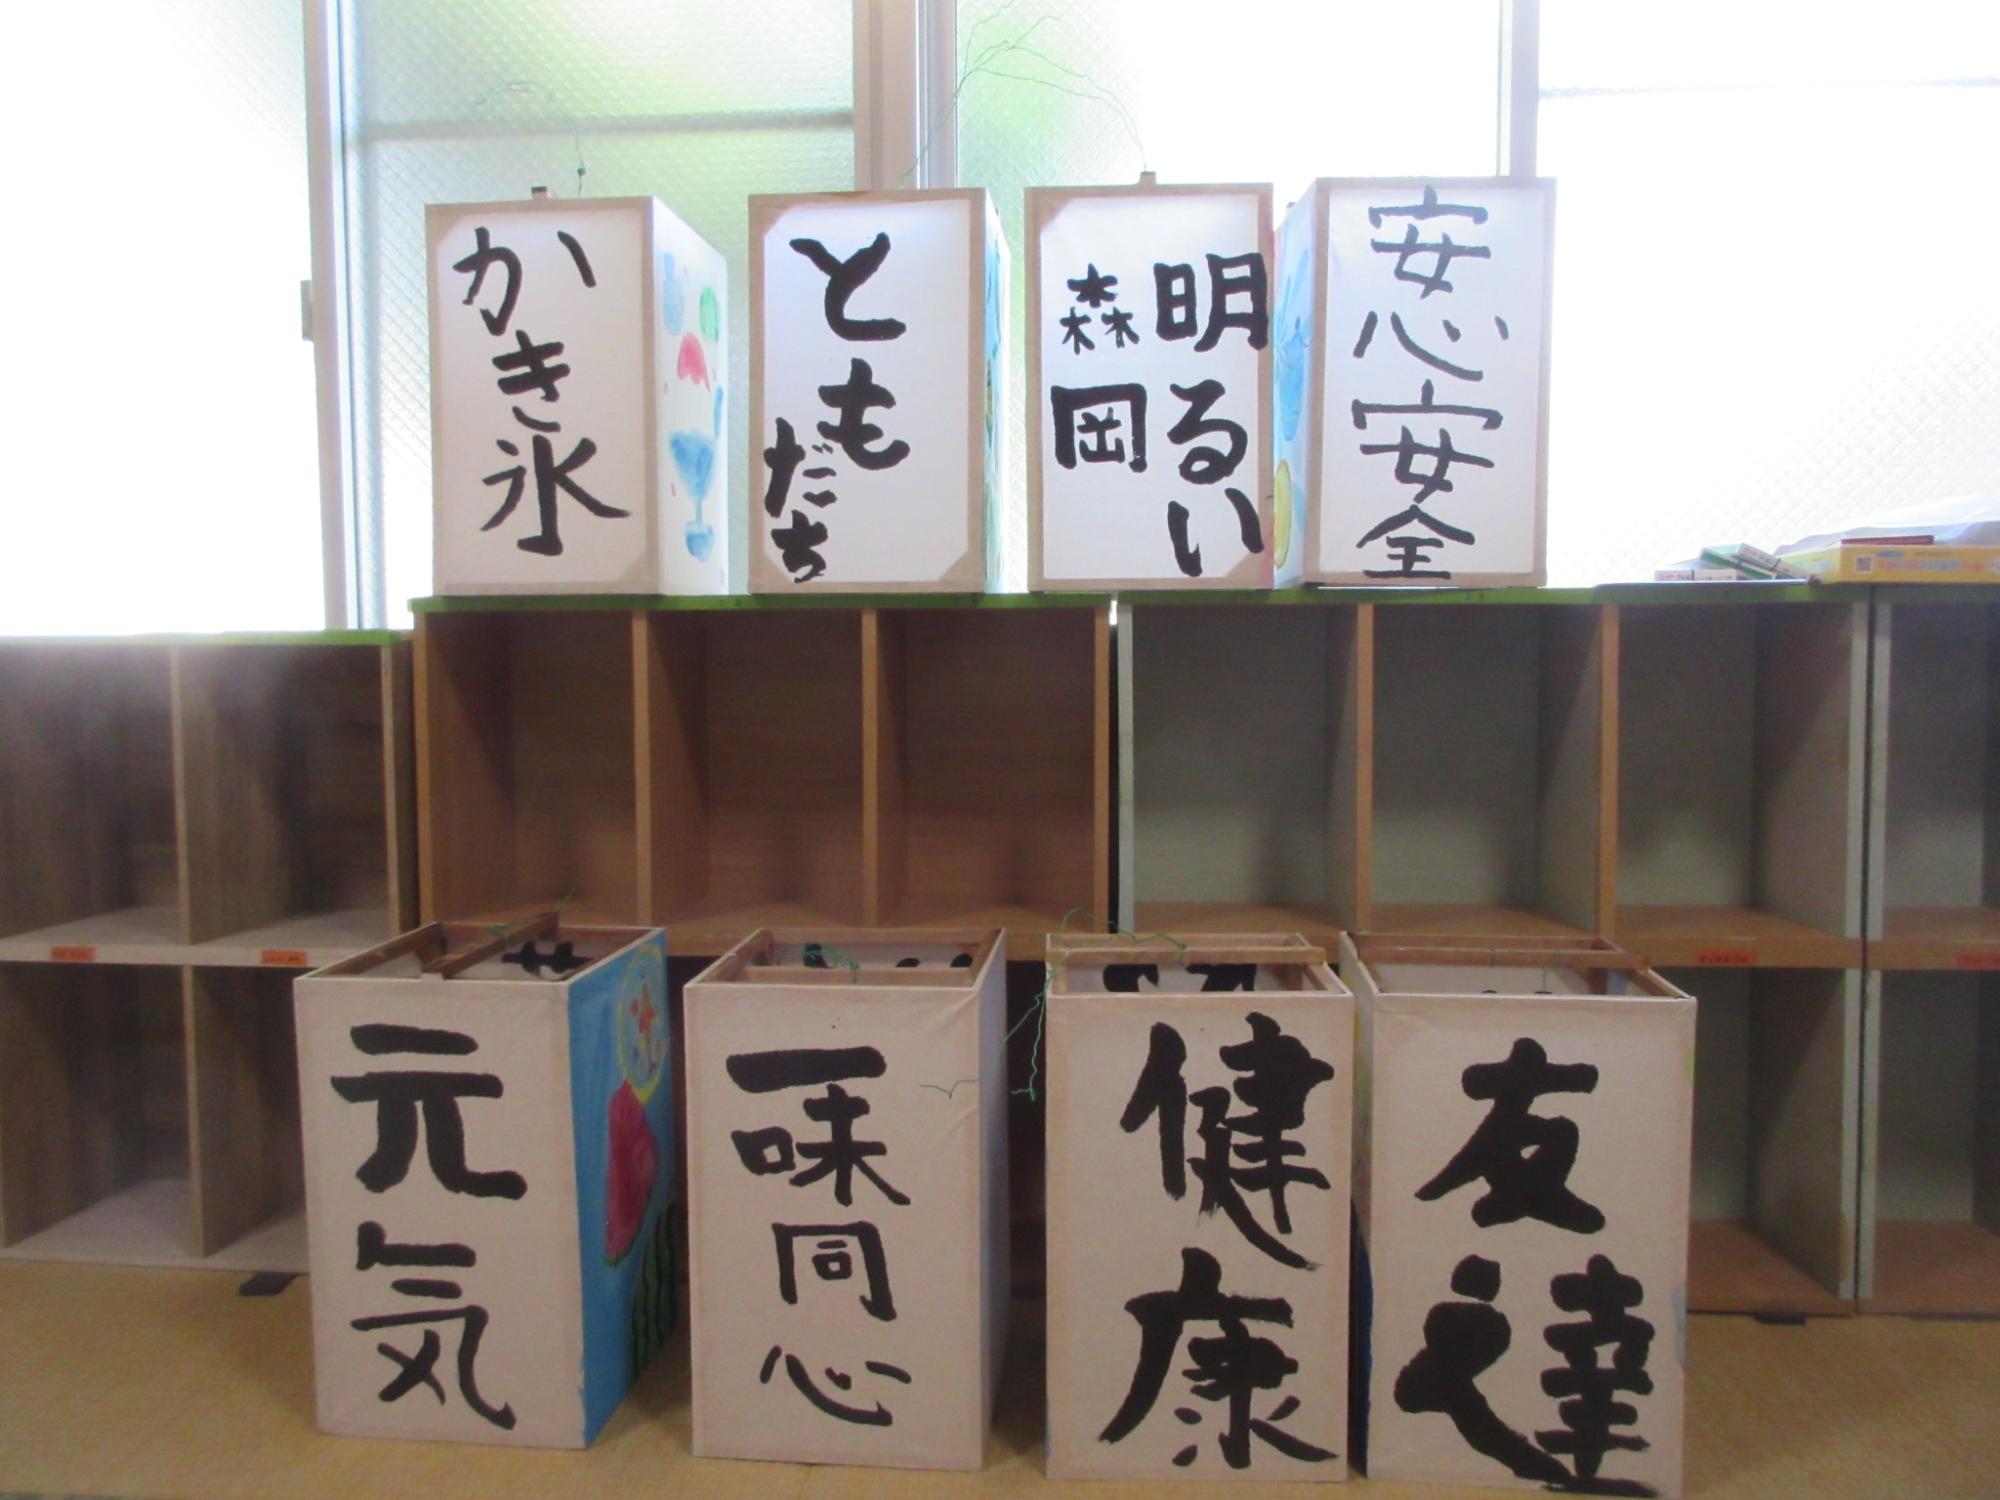 かき氷
ともだち
明るい
森岡
安心安全
元気
一味同心
健康
友達